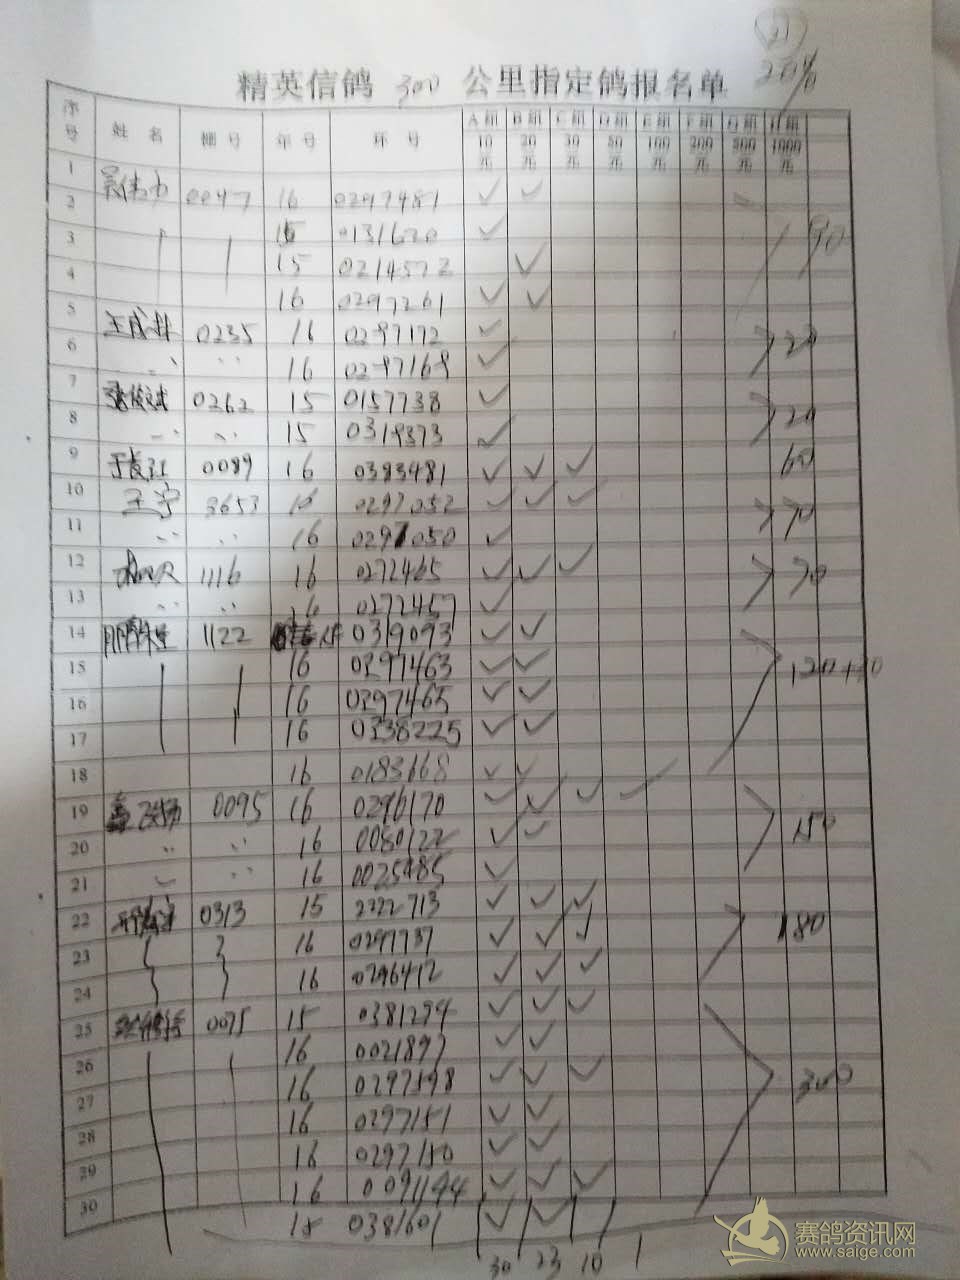 21
20%
精英信鸽 300 公里指定鸽报名单
序号 姓名 棚号 年号 环号 A组10元 B组20元 C组30元 D组50元 E组100元 F组200元 G组500元 H组1000元
1 0047 16 0297481 ✓ ✓
2 0131620 ✓
3 15 0214572 ✓ 90
4 16 0297261 ✓ ✓
5 0235 16 0297172 ✓
6 16 0297169 ✓ 20
7 0262 15 0157738 ✓
8 15 0319373 ✓ 20
9 于长江 0089 16 0383481 ✓ ✓ ✓ 60
10 王宁 3653 16 0297052 ✓ ✓ ✓
11 16 0297050 ✓ 70
12 1116 16 0272465 ✓ ✓ ✓
13 16 0272457 ✓ 70
14 1122 0319093 ✓ ✓
15 16 0297463 ✓ ✓ 120+
16 16 0297465 ✓ ✓
17 16 0338225 ✓ ✓
18 16 0183668 ✓ ✓
19 0095 16 0296170 ✓ ✓ ✓ ✓
20 16 0080122 ✓ ✓ 150
21 16 0025485 ✓
22 0313 15 2222713 ✓ ✓ ✓
23 16 0297737 ✓ ✓ ✓ 180
24 16 0296412 ✓ ✓ ✓
25 0075 15 0381294 ✓ ✓ ✓
26 16 0021897 ✓ ✓
27 16 0297198 ✓ ✓ ✓ 300
28 16 0297151 ✓ ✓
29 16 0297150 ✓ ✓
30 16 0091144 ✓ ✓ ✓
0381601 ✓ ✓
30 23 10 1
赛鸽资讯网
www.saige.com